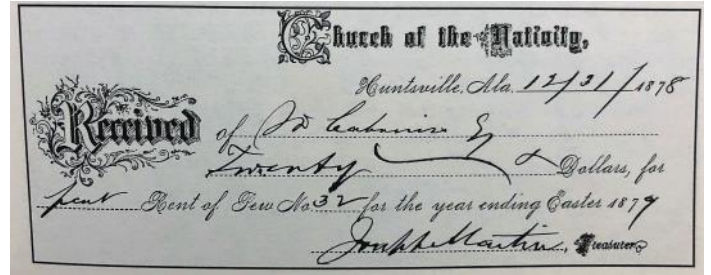 Church of the Nativity,
Huntsville, Ala. 12/31/1878
Received of S D Cabaniss Esq
Twenty & Dollars, for
Rent of Pew No 32 for the year ending Easter 1879
Treasurer